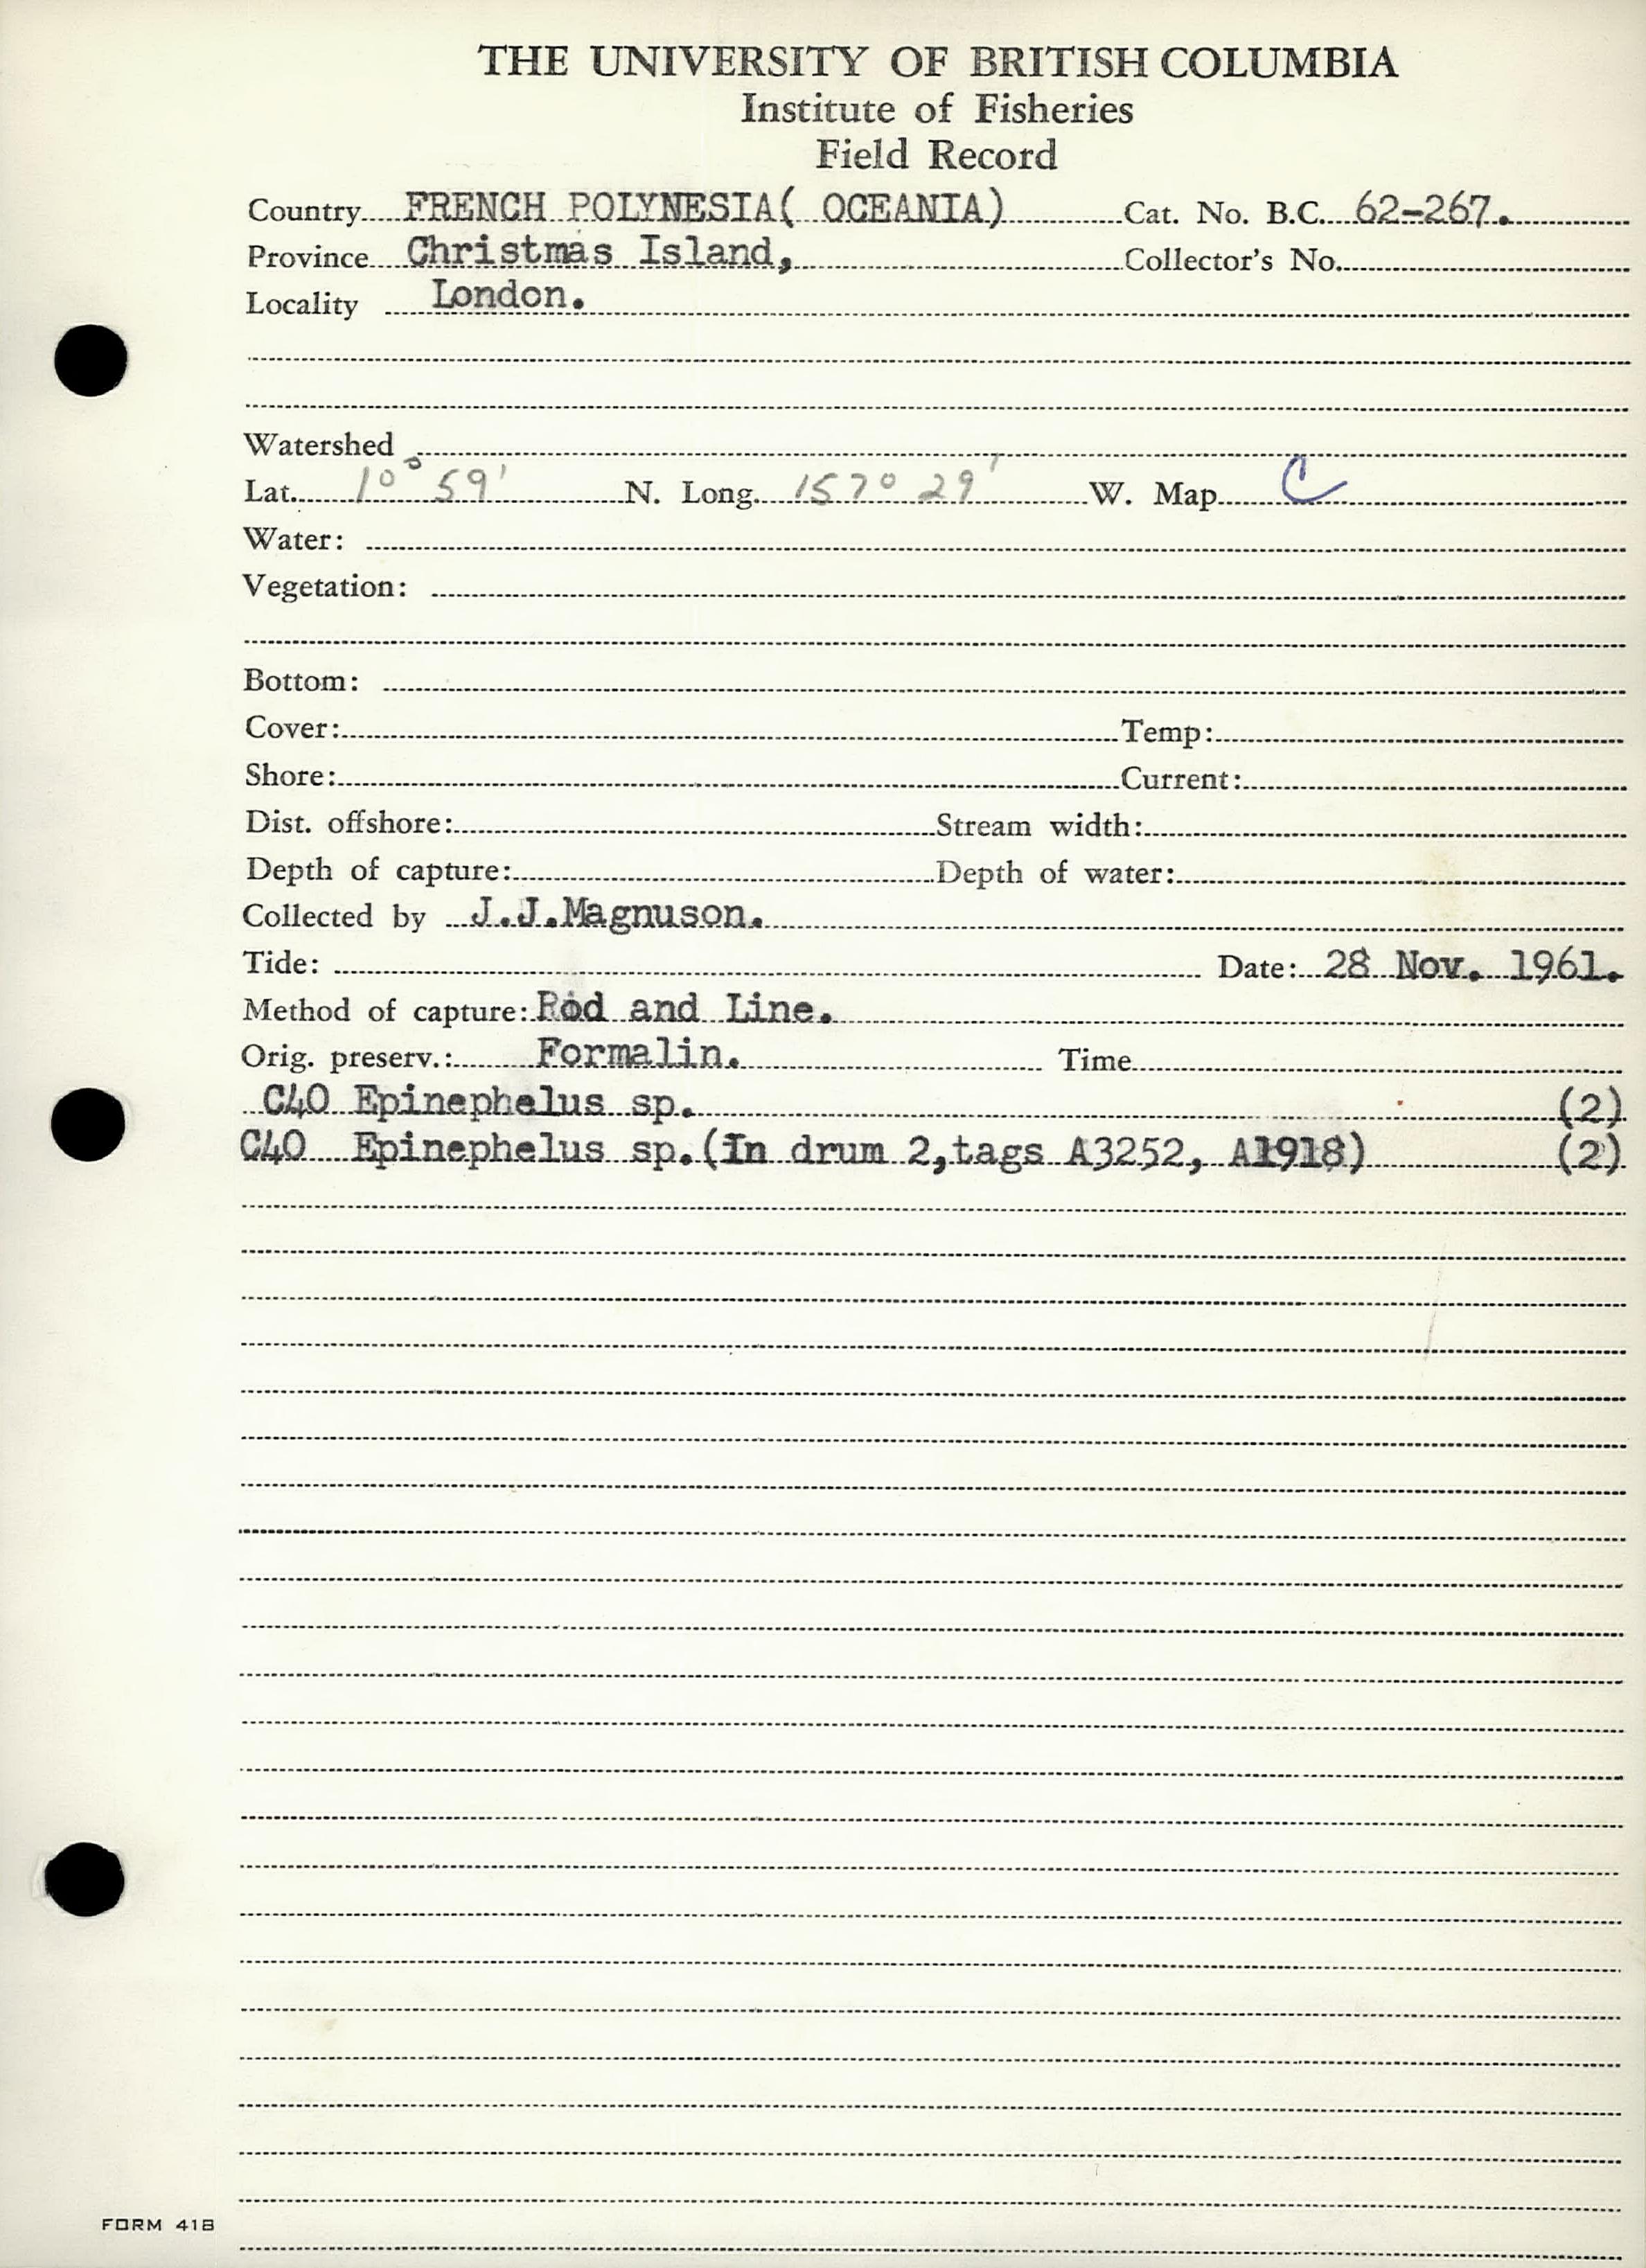 THE UNIVERSITY OF BRITISH COLUMBIA
Institute of Fisheries
Field Record
Country FRENCH POLYNESIA( OCEANIA) Cat. No. B.C. 62-267.
Province Christmas Island, Collector's No.
Locality London.
Watershed
Lat. 10° 59' N. Long. 157° 29' W. Map C
Water:
Vegetation:
Bottom:
Cover: Temp:
Shore: Current:
Dist. offshore: Stream width:
Depth of capture: Depth of water:
Collected by J.J.Magnuson.
Tide: Date: 28 Nov. 1961.
Method of capture: Rod and Line.
Orig. preserv.: Formalin. Time
C40 Epinephelus sp. (2)
C40 Epinephelus sp.(In drum 2,tags A3252, A1918) (2)
FORM 41B